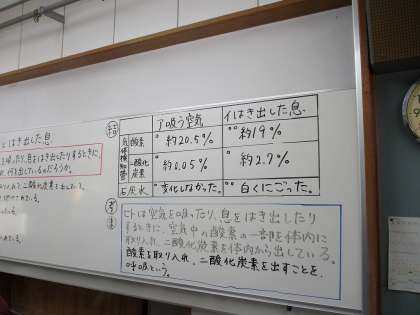 とはき出した息
を吸ったり、息をはき出したりするときに
何を出しているのだろうか。
取り入れて二酸化炭素を出している。
結
ア吸う空気 イはき出した息
気体検知管 酸素 約20.5% 約19%
二酸化炭素 約0.05% 約2.7%
石灰水 変化しなかった。 白くにごった。
考
ヒトは空気を吸ったり、息をはき出したり
するときに、空気中の酸素の一部を体内に
取り入れ、二酸化炭素を体内から出している。
酸素を取り入れ、二酸化炭素を出すことを、
呼吸という。